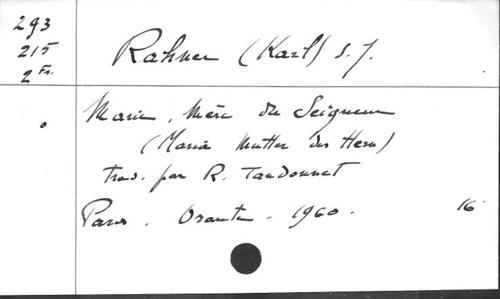 293
215
2 Fr.
Rahner (Karl) s.j.
Marie, Mère du Seigneur
(Maria Mutter des Herrn)
trad. par R. Tandonnet
Paris. Orante. 1960. 16